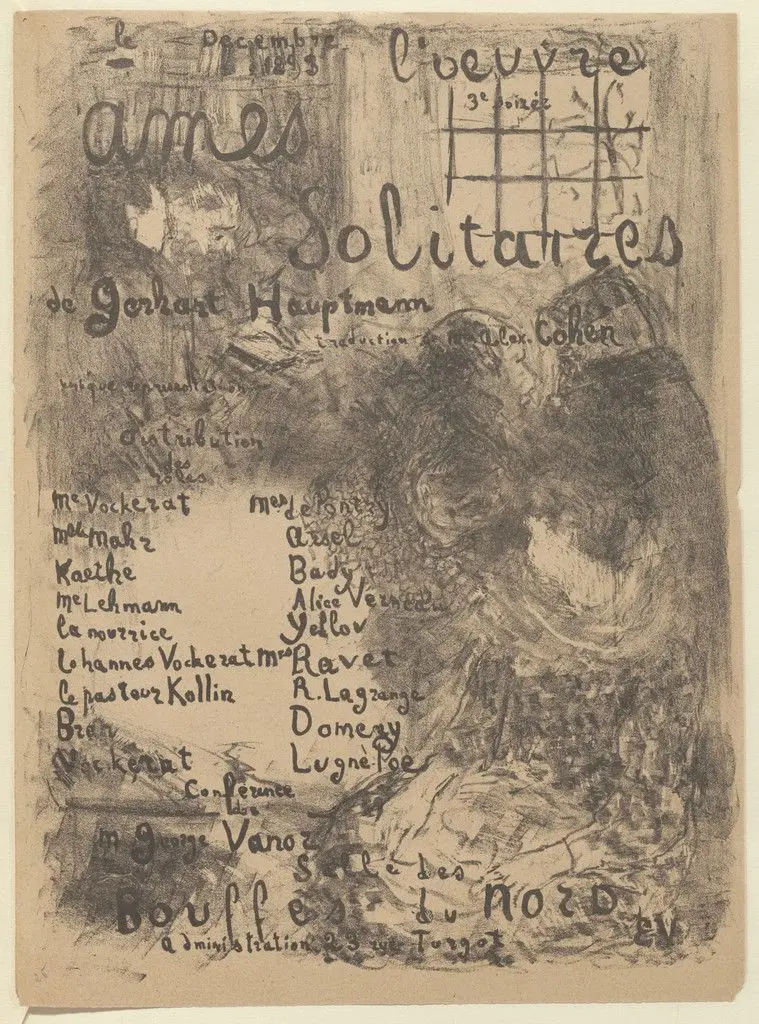 le Decembre l'oeuvre
1893
3e soirée
ames
Solitaires
de Gerhart Hauptmann
traduction de Mr alex. Cohen
unique représentation
distribution
des
rôles
me Vockerat mes de Pontry
melle Mahr Arsel
Kaethe Bady
me Lehmann Alice Verneau
la nourrice Yellov
Iohannes Vockerat Mrs Ravet
le pasteur Kollin R. Lagrange
Bran Domeny
Vockerat Lugné Poë
Conférence
de
m George Vanor
Salle des
Bouffes du nord
administration 23 rue Turgot
EV